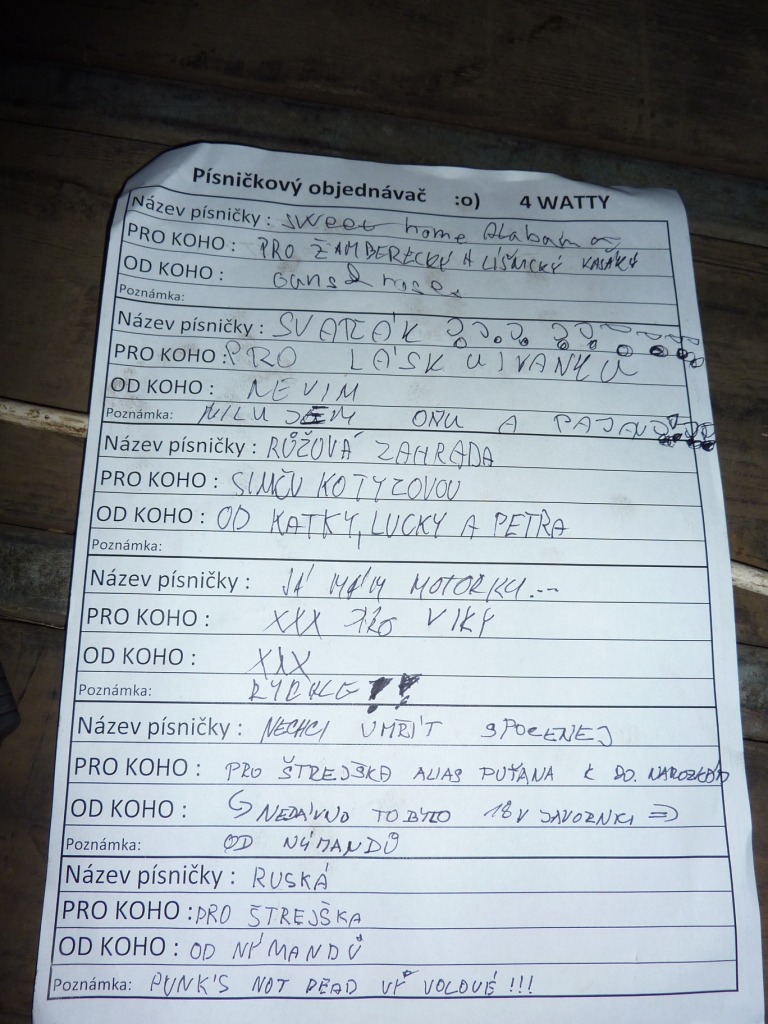 Písničkový objednávač :o) 4 WATTY
Název písničky : sweet home Alabama
PRO KOHO : PRO ŽAMBERECKÝ A LÍŠNICKÝ
OD KOHO : Guns & roses
Poznámka:
Název písničky : SVAŘÁK
PRO KOHO : PRO LÁSKU IVANKU
OD KOHO : NEVIM
Poznámka: MILUJEM A
Název písničky : RŮŽOVÁ ZAHRADA
PRO KOHO : SIMČU KOTYZOVOU
OD KOHO : OD KATKY, LUCKY A PETRA
Poznámka:
Název písničky : JÁ MÁM MOTORKU...
PRO KOHO : XXX PRO VIKY
OD KOHO : XXX
Poznámka: RYCHLE !!
Název písničky : NECHCI UMŘÍT SPOCENEJ
PRO KOHO : PRO ŠTREJŠKA ALIAS PUŤANA K 20. NAROZKÁM
OD KOHO : ↳ NEDÁVNO TO BYLO 18 V JAVORNICI =)
Poznámka: OD NÝMANDŮ
Název písničky : RUSKÁ
PRO KOHO : PRO ŠTREJŠKA
OD KOHO : OD NÝMANDŮ
Poznámka: PUNK'S NOT DEAD VY VOLOVÉ !!!